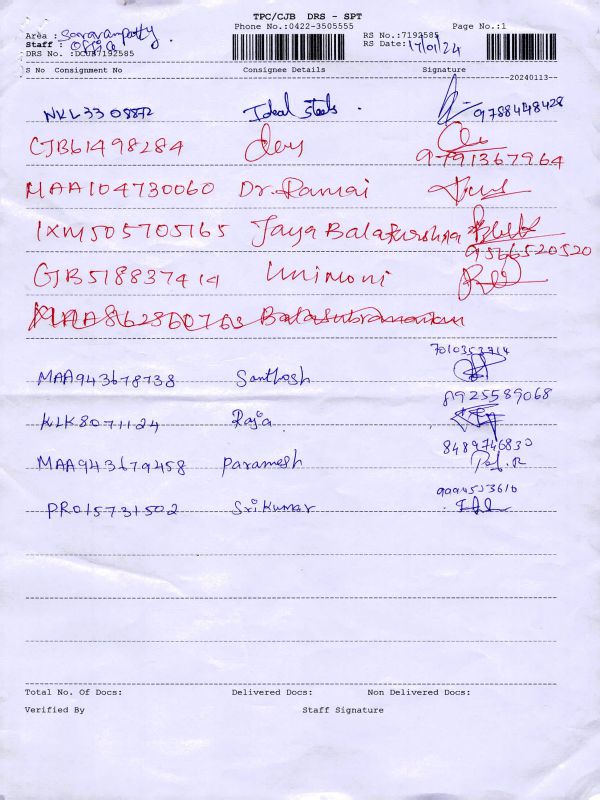 TPC/CJB DRS - SPT
Phone No.:0422-3505555 Page No.:1
Area : Saravanpatty.
Staff : Office
RS No.:7192585
RS Date: 17/01/24
DRS No. :DCJB7192585
S No Consignment No Consignee Details Signature
20240113
NKL3308872 Ideal steels. 9788448428
CJB61498284 Devy
9791367964
MAA104730060 Dr. Ramai
IXM505705165 Jaya Balakrishna
9566520520
CJB518837414 Unimoni
MAA862860763 Balasubramaniam
7010353714
MAA943678738 Santhosh
8925589068
KLK8071124 Raja
8489746830
MAA943679458 Paramesh
PRO15731502 Srikumar
Total No. Of Docs: Delivered Docs: Non Delivered Docs:
Verified By Staff Signature